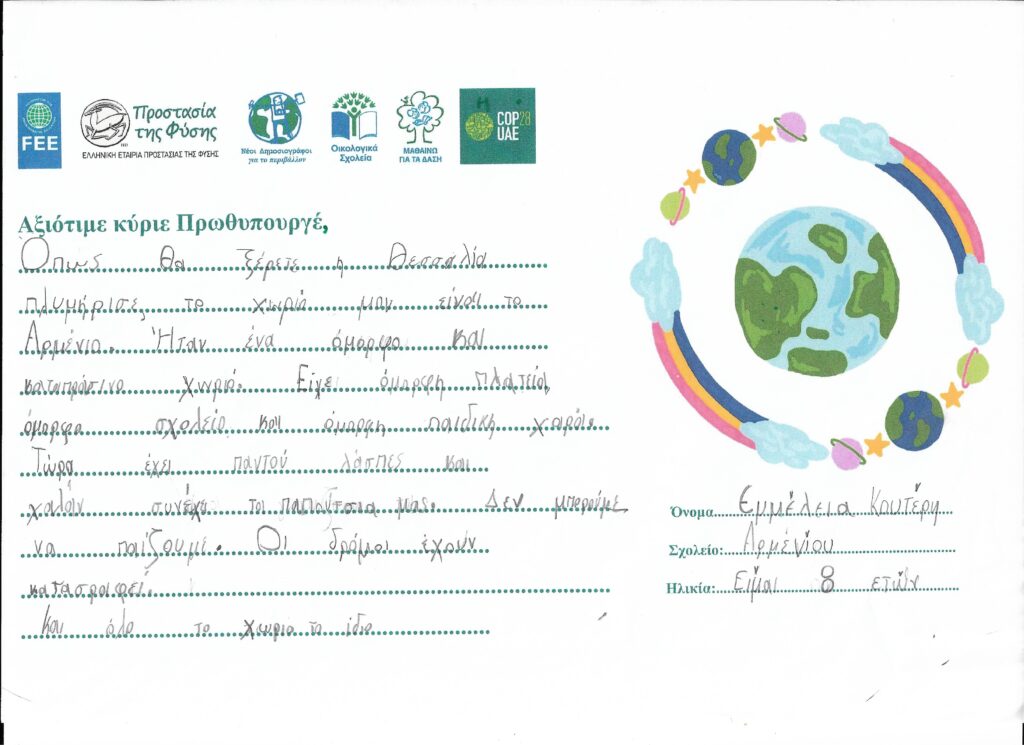 FEE
Προστασία
της Φύσης
1951
ΕΛΛΗΝΙΚΗ ΕΤΑΙΡΙΑ ΠΡΟΣΤΑΣΙΑΣ ΤΗΣ ΦΥΣΗΣ
Νέοι Δημοσιογράφοι
για το περιβάλλον
Οικολογικά
Σχολεία
ΜΑΘΑΙΝΩ
ΓΙΑ ΤΑ ΔΑΣΗ
COP28
UAE
Αξιότιμε κύριε Πρωθυπουργέ,
Όπως θα ξέρετε η Θεσσαλία
πλυμήρισε, το χωριό μου είναι το
Αρμένιο. Ήταν ένα όμορφο και
καταπράσινο χωριό. Είχε όμορφη πλατεία,
όμορφο σχολείο και όμορφη παιδική χαρά.
Τώρα έχει παντού λάσπες και
χαλάν συνέχε τα παπούτσια μας. Δεν μπορούμε
να παίζουμε. Οι δρόμοι έχουν
καταστραφεί.
Και όλο το χωριο το ίδιο
Όνομα Εμμέλεια Κουτέρη
Σχολείο: Αρμένιου
Ηλικία: Είμαι 8 ετών